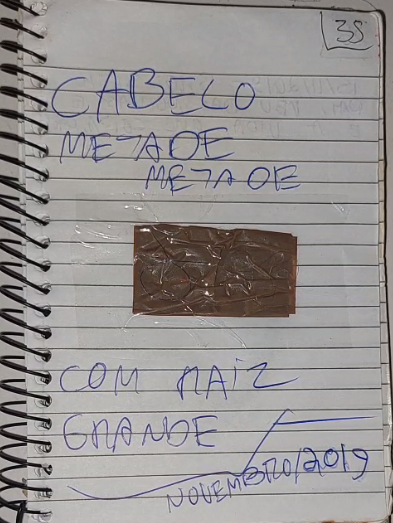 35
CABELO
METADE
METADE
COM RAIZ
GRANDE
NOVEMBRO/2019